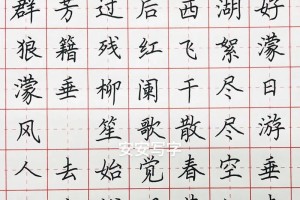 群芳过后西湖好
狼籍残红飞絮濛
濛垂柳阑干尽日
风 笙歌散尽游
人去始觉春空垂
安安写字